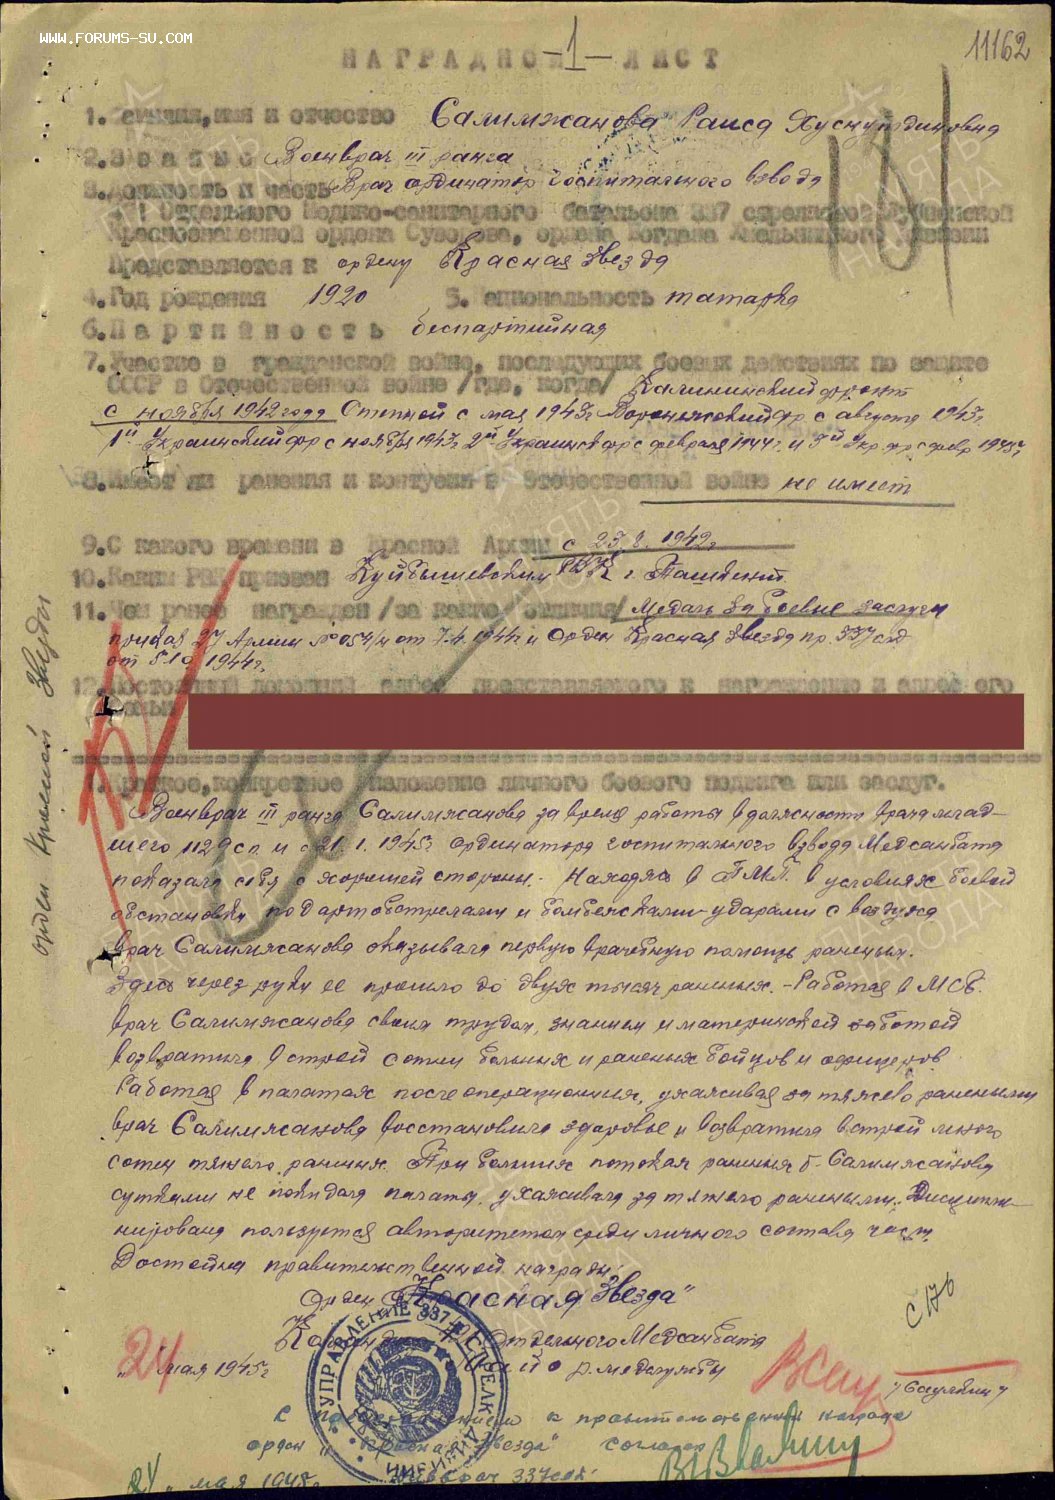 www.forums-su.com
11162
НАГРАДНОЙ -1- ЛИСТ
1. Фамилия, имя и отчество Салимжанова Раиса Хуснутдиновна
2. Звание Военврач III ранга
3. Должность и часть Врач ординатор госпитального взвода
Отдельного Медико-санитарного батальона 337 стрелковой Лубненской
Краснознаменной ордена Суворова, ордена Богдана Хмельницкого дивизии
Представляется к ордену Красная Звезда
4. Год рождения 1920 5. Национальность татарка
6. Партийность беспартийная
7. Участие в гражданской войне, последующих боевых действиях по защите
СССР в Отечественной войне /где, когда/ Калининский фронт
с ноября 1942 года Степной с мая 1943г Воронежский фр с августа 1943г.
1й Украинский фр с ноября 1943г. 2й Украинск фр с февраля 1944г. и 3й Укр. фр с февр 1945г.
8. Имеет ли ранения и контузии в Отечественной войне не имеет
9. С какого времени в Красной Армии с 1942г
10. Каким РВК призван Куйбышевским РВК г. Ташкент.
11. Чем ранее награжден /за какие отличия/ Медаль За боевые заслуги
приказ 27 Армии № 054/н от 7.4.1944г и Орден Красная Звезда пр. 337 сд
от 1944г.
12. Постоянный домашний адрес представляемого к награждению и адрес его
семьи
1. Краткое, конкретное изложение личного боевого подвига или заслуг.
Военврач III ранга Салимжанова за время работы в должности врача млад-
шего 1129 сп и с 21.1.1945г ординатора госпитального взвода Медсанбата
показала себя с хорошей стороны. Находяс в П.М.П. в условиях боевой
обстановки под артобстрелами и бомбежками-ударами с воздуха
врач Салимжанова оказывала первую врачебную помощь раненым.
Здесь через руки ее прошло до двух тысяч раненых. -Работая в МСБ.
врач Салимжанова своим трудом, знанием и материнской заботой
возвратила в строй сотни больных и раненых бойцов и офицеров.
Работая в палатах послеоперационных, ухаживая за тяжело ранеными
врач Салимжанова восстановила здоровье и возвратила в строй много
сотен тяжело раненых. При больших потоках раненых т. Салимжанова
сутками не покидала палаты, ухаживала за тяжело ранеными. Дисципли-
нирована пользуется авторитетом среди личного состава части.
Достойна правительственной награды:
Орден "Красная Звезда"
Командир Отдельного Медсанбата
майор медслужбы
24 мая 1945г
УПРАВЛЕНИЕ 337 СТРЕЛК. ДИВИЗИИ
К правительственной награде
орден "Красная Звезда" согласен
Дивврач 337 сд:
24 мая 1945г.
орден Красной Звезды